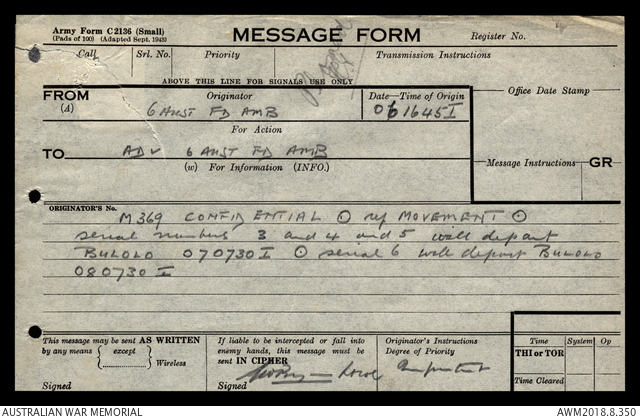 Army Form C 2136 (Small)
(Pads of 100) (Adapted Sept. 1943)
MESSAGE FORM
Register No.
Call
Srl. No.
Priority
Transmission Instructions
ABOVE THIS LINE FOR SIGNALS USE ONLY
FROM
(A)
Originator
Date—Time of Origin
Office Date Stamp
6 AUST FD AMB
061645I
For Action
TO
ADV 6 AUST FD AMB
(w) For Information (INFO.)
Message Instructions
GR
ORIGINATOR'S No.
M369 CONFIDENTIAL ⊙ ref MOVEMENT ⊙
serial numbers 3 and 4 and 5 will depart
BULOLO 070730I ⊙ serial 6 will depart BULOLO
080730 I
This message may be sent AS WRITTEN
by any means
except
Wireless
Signed
If liable to be intercepted or fall into
enemy hands, this message must be
sent IN CIPHER
Signed
Originator's Instructions
Degree of Priority
Important
Time
System
Op
THI or TOR
Time Cleared
AUSTRALIAN WAR MEMORIAL
AWM2018.8.350